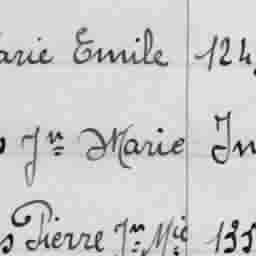 arie Emile 124
Jn Marie In
s Pierre Jn Mie 135